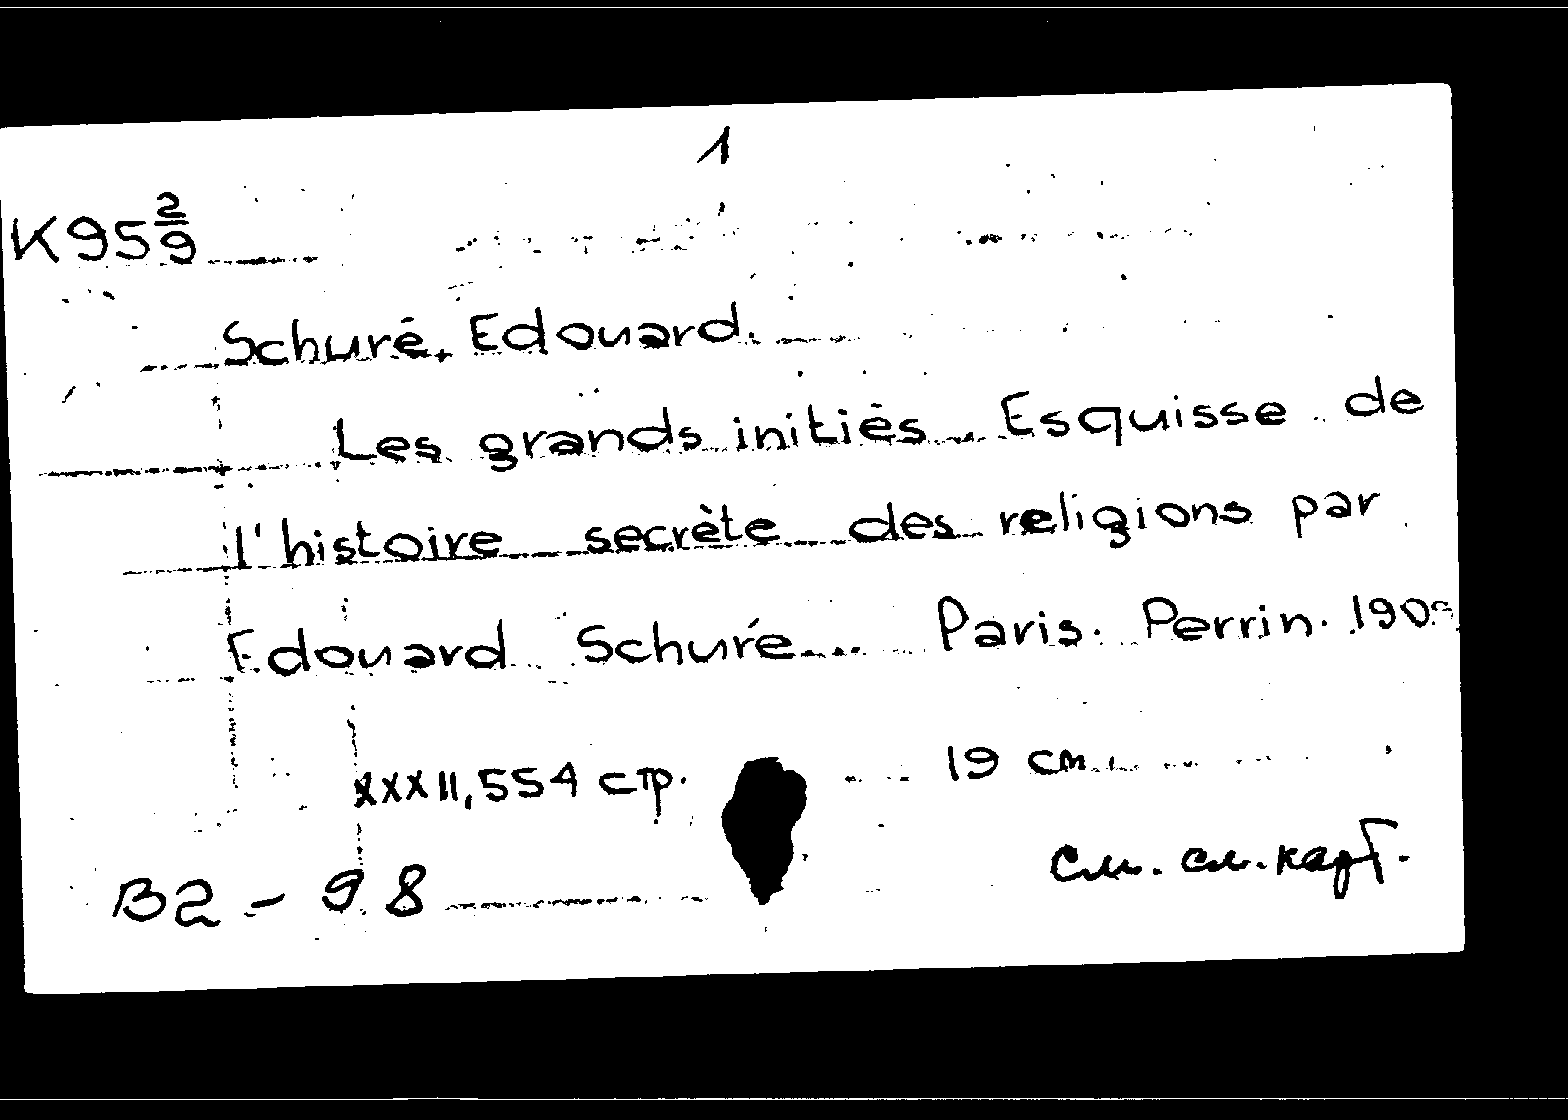 1
K95 2/9
Schuré, Edouard.
Les grands initiés. Esquisse de
l'histoire secrète des religions par
Edouard Schuré... Paris. Perrin.
XXXII, 554 стр. 19 см.
В2 - 98 см. сл. карт.